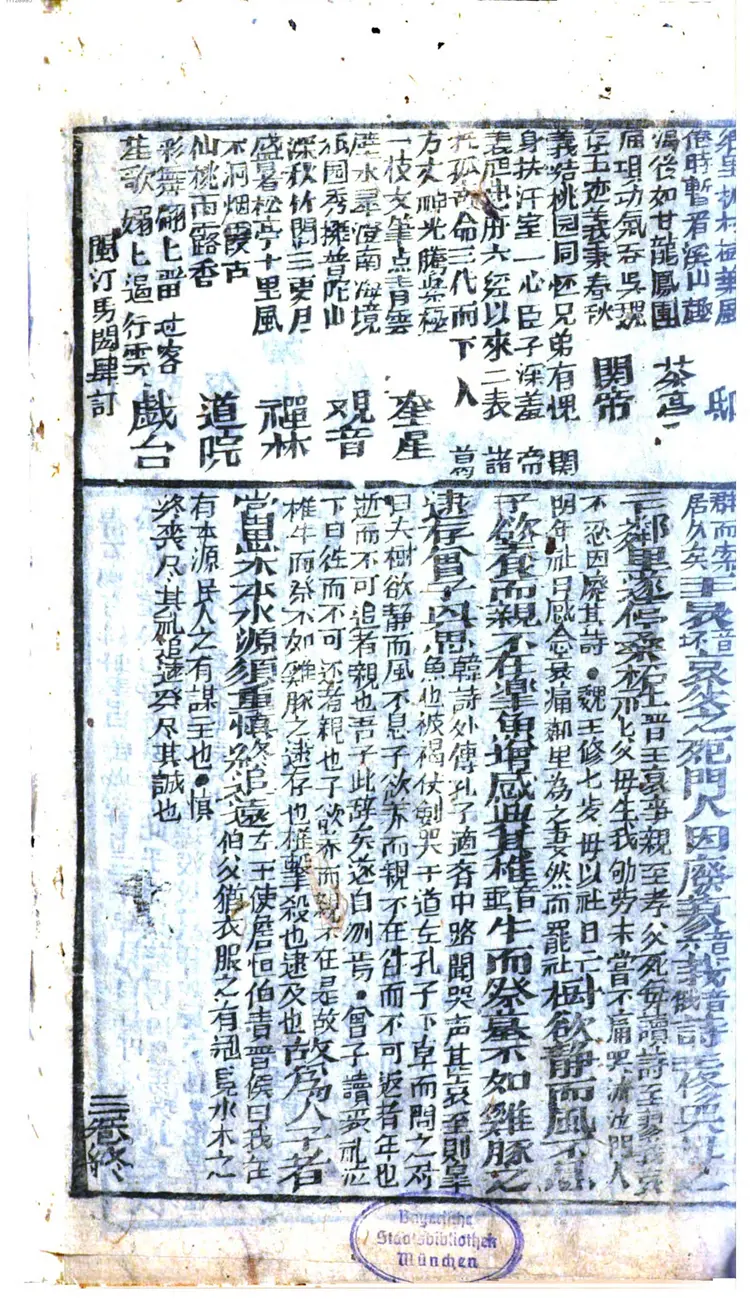 倦時暫看溪山趣 邸
渴後如甘龍鳳團
氣吞吳魏 茶亭
存王迹義秉春秋 関帝
義結桃园同怀兄弟有愧 関
身扶汗室一心臣子深羞 帝
六经以來二表 諸
托孤命三代而下人 葛
方丈神光騰紫極
一枝文筆点青雲 奎星
壁水南海境
祇园秀擁普陀山 观音
深秋竹閣三更月
盛暑松亭十里風 禪林
洞烟霞古
仙桃雨露香 道院
彩舞翩上畱过客
笙歌嫋上遏行雲 戯台
閩汀馬閎肆訂
群而索
居久矣 王裒音坏哀父之死門人因廢蓼音六莪音俄詩王修哭母之
亡鄰里遂停桑柘社 晋王裒事親至孝父死每讀詩至哀
哀父毋生我劬劳未嘗不痛哭流泣門人
不忍因廢其詩●魏王修七歲毋以社日亡
明年社日感念哀痛鄰里為之凄然而罷社 樹欲静而風不息
子欲养而親不在皐魚增感與其椎音垂牛而祭墓不如雞豚之
逮存曾子興思 韓詩外傳孔子適齐中路聞哭声甚哀至則皐
魚也被褐仗劍哭于道左孔子下車而問之对
曰夫樹欲静而風不息子欲养而親不在往而不可返者年也
逝而不可追者親也吾于此辞矣遂自刎焉●曾子讀喪礼泣
下曰徃而不可还者親也子欲养而親不在是故
椎牛而祭不如雞豚之逮存也椎擊殺也逮及也 故為人子者
當思木本水源須重慎終追遠 左王使詹恒伯責晋侯曰我在
伯父猶衣服之有冠冕水木之
有本源民人之有謀主也●慎
終喪尽其礼追遠祭尽其誠也
三卷終
Bayerische
Staatsbibliothek
München